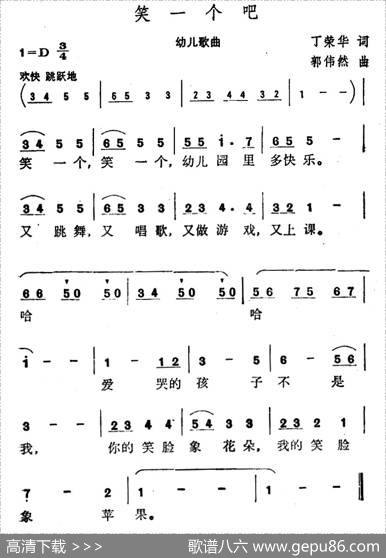 笑一个吧
幼儿歌曲
丁荣华 词
1=D 3/4
郭伟然 曲
欢快 跳跃地
(3 4 5 5 | 6 5 3 3 | 2 3 4 4 3 2 | 1 - - )|
3 4 5 5 | 6 5 5 5 | 5 5 i . 7 | 6 5 0 2 |
笑一个,笑一个,幼儿园里多快乐。
3 4 5 5 | 6 5 3 3 | 2 3 4 . 4 | 3 2 1 - |
又跳舞,又唱歌,又做游戏,又上课。
6 6 5 0 5 0 | 6 5 5 0 5 0 | 3 4 5 0 5 0 | 5 6 7 5 6 7 |
哈 哈
i - - | 1 - 1 2 | 3 - 5 | 6 - 5 6 |
爱哭的孩子不是
3 - - | 2 3 4 4 | 5 4 3 3 | 2 3 4 5 6 |
我,你的笑脸象花朵,我的笑脸
7 - 2 | i - - | i - 0 ‖
象苹果。
高清下载 >>>
歌谱八六 www.gepu86.com